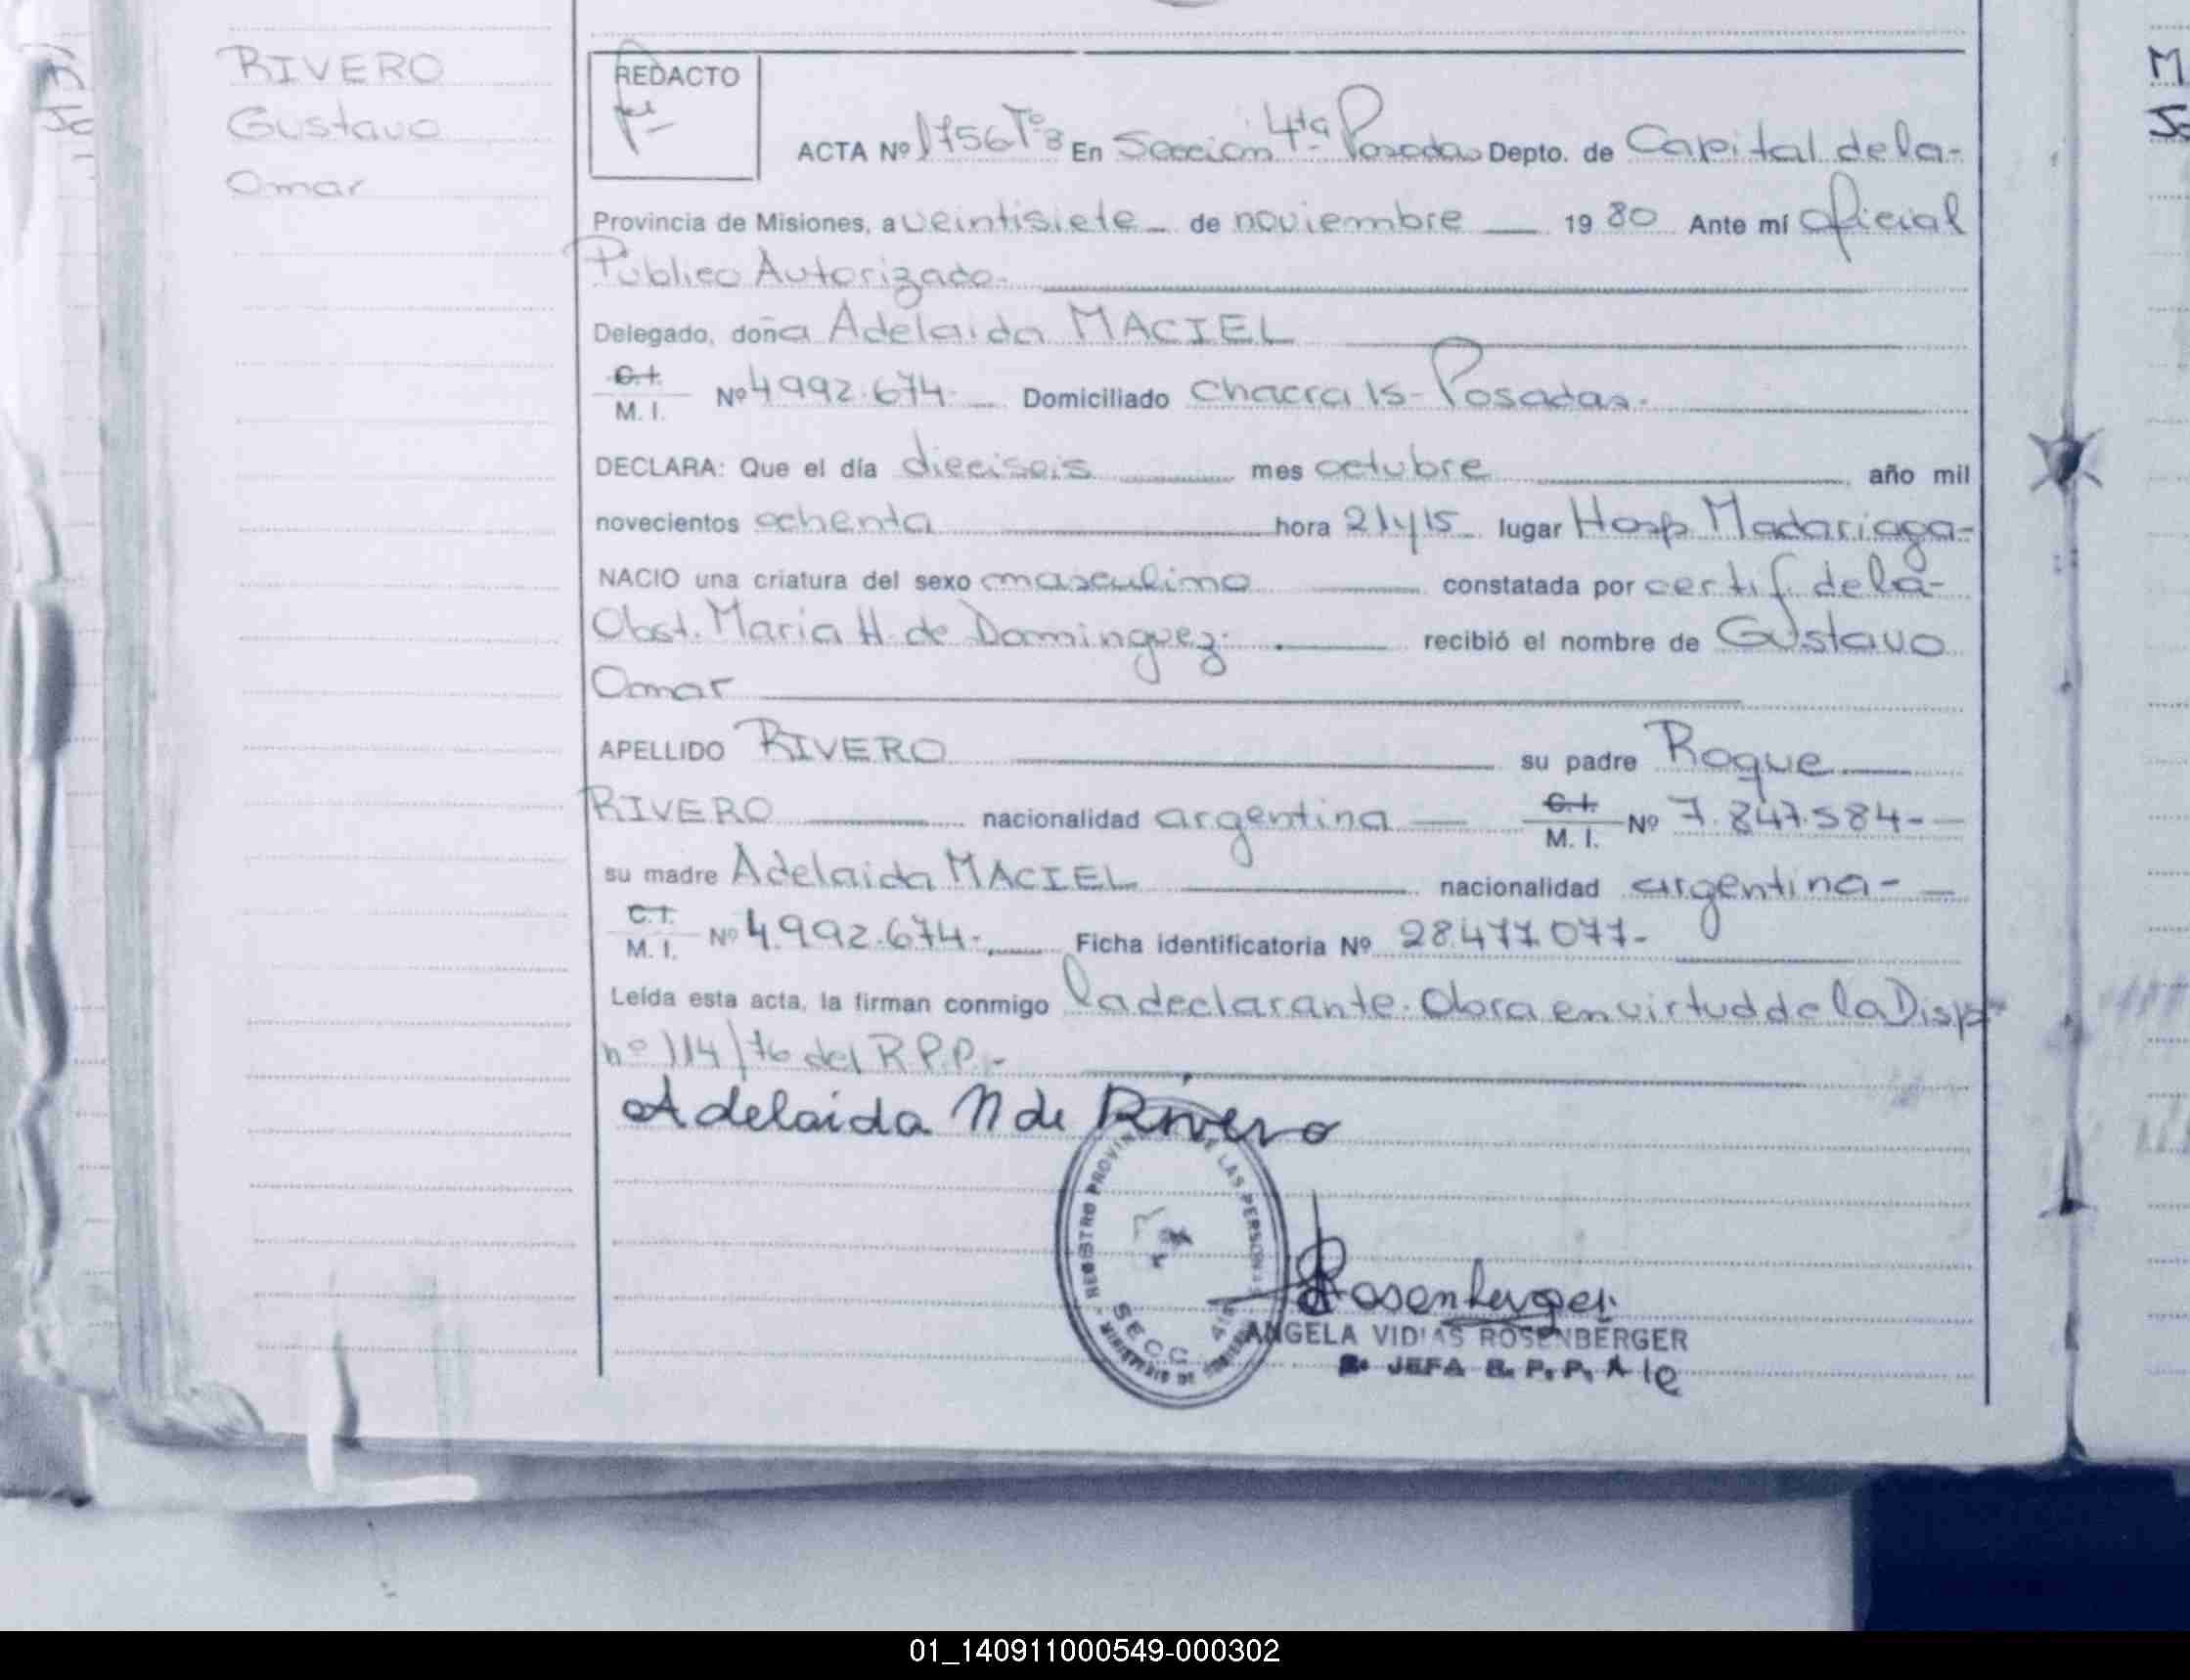 RIVERO
Gustavo
Omar
REDACTO
ACTA Nº 1756 Tº3 En Sección 4ta Posadas Depto. de Capital de la-
Provincia de Misiones, a veintisiete - de noviembre 19 80 Ante mí Oficial
Público Autorizado.
Delegado, doña Adelaida MACIEL
C.I.
M. I. Nº 4992.674- Domiciliado Chacra 15- Posadas.
DECLARA: Que el día dieciseis mes octubre año mil
novecientos ochenta hora 21y15 lugar Hosp Madariaga-
NACIO una criatura del sexo masculino constatada por certif. de la-
Obst. Maria H. de Dominguez. recibió el nombre de Gustavo
Omar
APELLIDO RIVERO su padre Roque
RIVERO nacionalidad argentina C.I.
M. I. Nº 7.847.584-
su madre Adelaida MACIEL nacionalidad argentina-
C.I.
M. I. Nº 4.992.674- Ficha identificatoria Nº 28.477.077-
Leída esta acta, la firman conmigo la declarante. Obra en virtud de la Disp
nº 114/76 del R.P.P.-
Adelaida M de Rivero
REGISTRO DE LAS
SECC. 4ta
Rosenberger
ANGELA VIDIAS ROSENBERGER
JEFA R. P. P. A/c
01_140911000549-000302